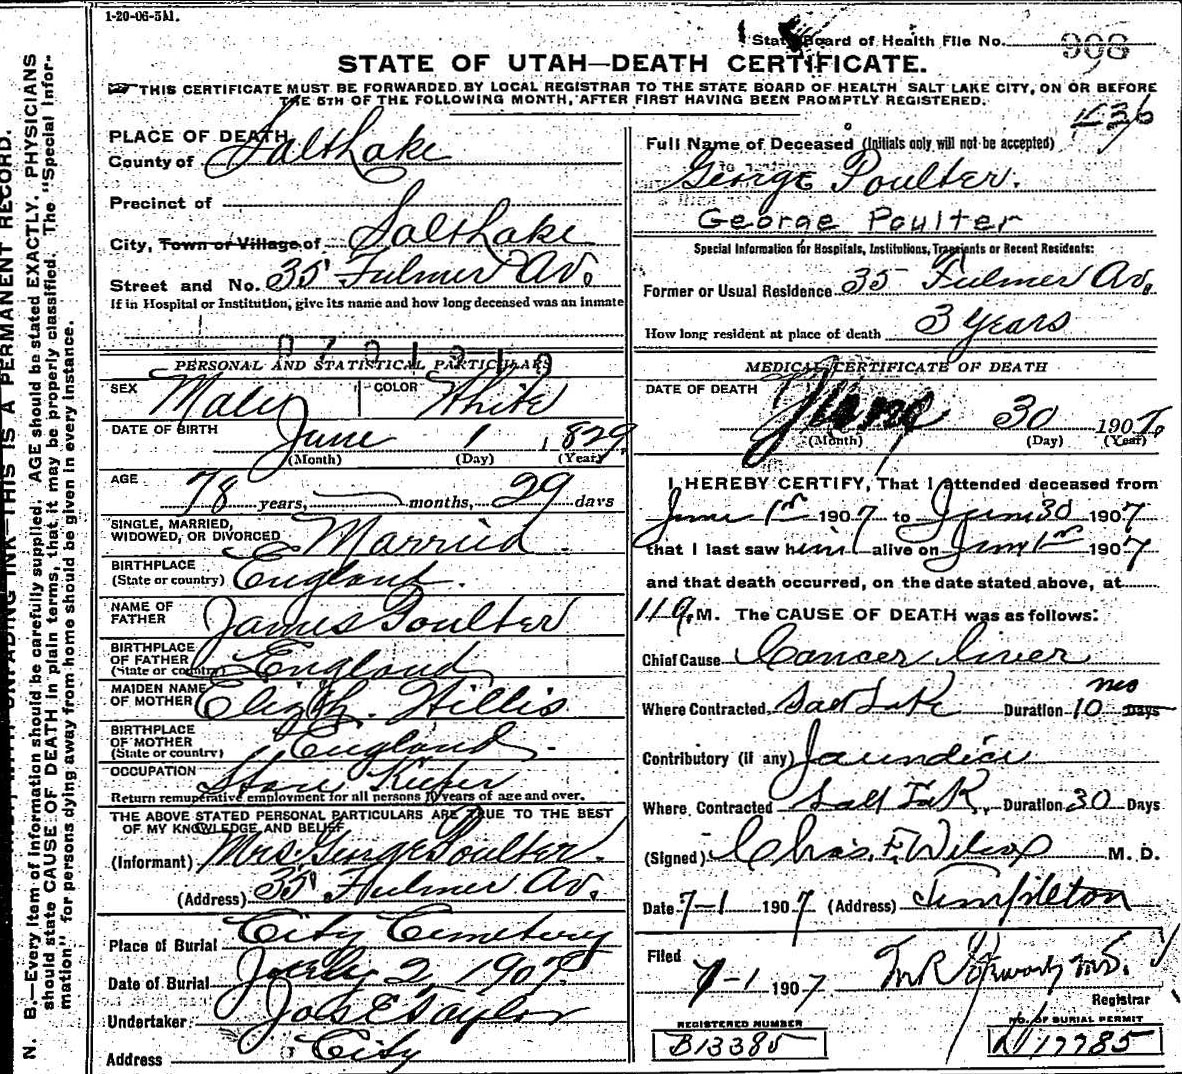 1-20-06-5M.
State Board of Health File No. 908
STATE OF UTAH—DEATH CERTIFICATE.
THIS CERTIFICATE MUST BE FORWARDED BY LOCAL REGISTRAR TO THE STATE BOARD OF HEALTH SALT LAKE CITY, ON OR BEFORE
THE 5TH OF THE FOLLOWING MONTH, AFTER FIRST HAVING BEEN PROMPTLY REGISTERED.
N. B.—Every item of information should be carefully supplied. AGE should be stated EXACTLY. PHYSICIANS
should state CAUSE OF DEATH in plain terms, that it may be properly classified. The "Special Infor-
mation" for persons dying away from home should be given in every instance.
UNFADING INK—THIS IS A PERMANENT RECORD.
PLACE OF DEATH
County of Salt Lake
Precinct of
City, Town or Village of Salt Lake
Street and No. 35 Fulmer Av.
If in Hospital or Institution, give its name and how long deceased was an inmate
PERSONAL AND STATISTICAL PARTICULARS
SEX Male COLOR White
DATE OF BIRTH June 1 1829
(Month) (Day) (Year)
AGE 78 years, months, 29 days
SINGLE, MARRIED,
WIDOWED, OR DIVORCED Married
BIRTHPLACE
(State or country) England.
NAME OF
FATHER James Poulter
BIRTHPLACE
OF FATHER
(State or country) England
MAIDEN NAME
OF MOTHER Elizth. Willis
BIRTHPLACE
OF MOTHER
(State or country) England.
OCCUPATION Store Keeper
Return remuperative employment for all persons 10 years of age and over.
THE ABOVE STATED PERSONAL PARTICULARS ARE TRUE TO THE BEST
OF MY KNOWLEDGE AND BELIEF
(Informant) Mrs. George Poulter.
(Address) 35 Fulmer Av.
Place of Burial City Cemetery
Date of Burial July 2, 1907
Undertaker Jos E Taylor
Address City
436
Full Name of Deceased (Initials only will not be accepted)
George Poulter.
George Poulter
Special Information for Hospitals, Institutions, Transients or Recent Residents:
Former or Usual Residence 35 Fulmer Av.
How long resident at place of death 3 Years
MEDICAL CERTIFICATE OF DEATH
DATE OF DEATH June 30 1907
(Month) (Day) (Year)
I HEREBY CERTIFY, That I attended deceased from
June 1st 1907 to June 30 1907
that I last saw him alive on June 1st 1907
and that death occurred, on the date stated above, at
M. The CAUSE OF DEATH was as follows:
Chief Cause Cancer Liver
Where Contracted Salt Lake Duration 10 mos Days
Contributory (if any) Jaundice
Where Contracted Salt Lake Duration 30 Days
(Signed) Chas. F. Wilcox M. D.
Date 7-1 1907 (Address) Templeton
Filed
7-1 1907
Registrar
REGISTERED NUMBER NO. OF BURIAL PERMIT
B13385 D17785